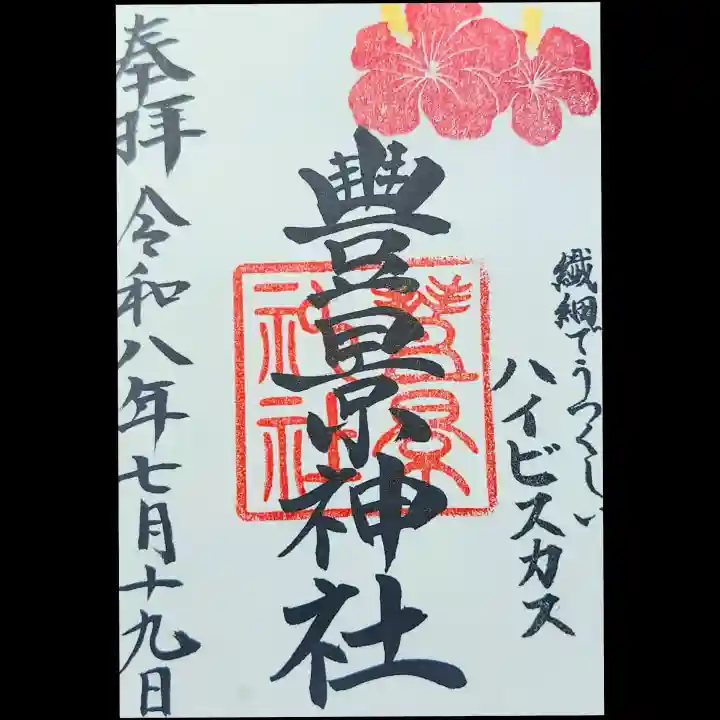 繊細でうつくしい
ハイビスカス
豊景神社
豊景
神社
奉拝 令和八年七月十九日